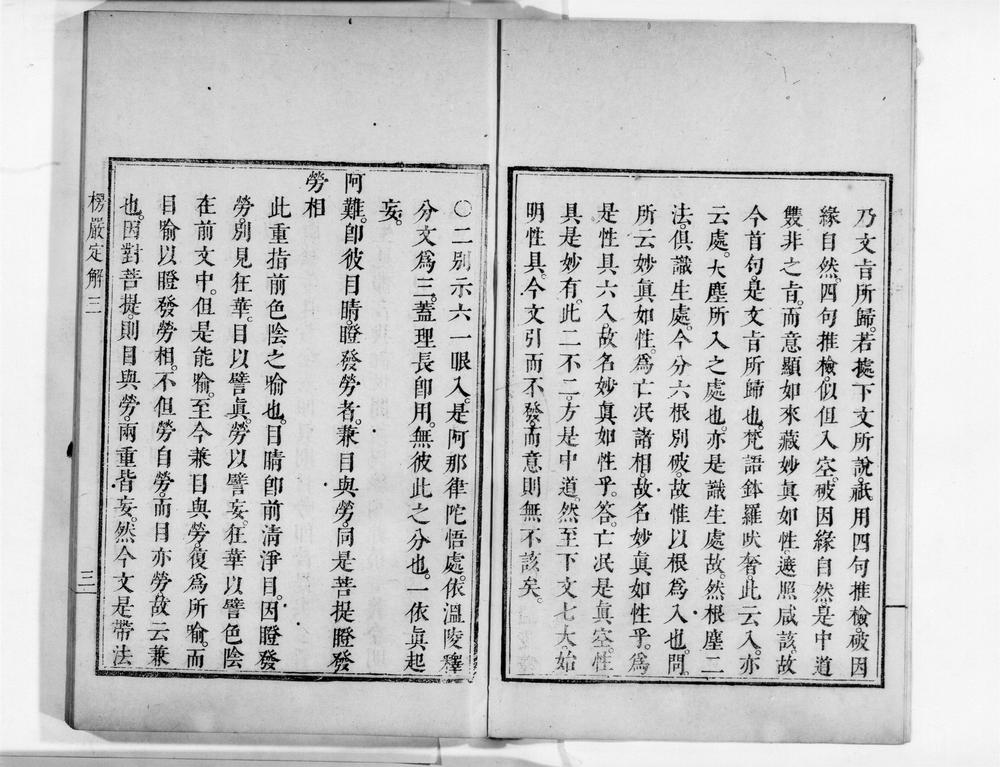 乃文旨所歸。若據下文所說。祇用四句推檢。破因
緣自然。四句推檢。似但入空。破因緣自然。是中道
雙非之旨。而意顯如來藏妙真如性。遮照咸該。故
今首句。是文旨所歸也。梵語鉢羅吠奢。此云入。亦
云處。六塵所入之處也。亦是識生處故。然根塵二
法。俱識生處。今分六根別破。故惟以根為入也。問。
所云妙真如性。為亡泯諸相。故名妙真如性乎。為
是性具六入。故名妙真如性乎。答。亡泯是真空。性
具是妙有。此二不二。方是中道。然至下文七大。始
明性具。今文引而不發。而意則無不該矣。
〇二別示六一眼入。是阿那律陀悟處。依溫陵釋
分文為三。蓋理長即用。無彼此之分也。一依真起
妄。
阿難。即彼目睛。瞪發勞者。兼目與勞。同是菩提瞪發
勞相
此重指前色陰之喻也。目睛即前清淨目。因瞪發
勞。別見狂華。目以譬真。勞以譬妄。狂華以譬色陰
在前文中。但是能喻。至今兼目與勞。復為所喻。而
目喻以瞪發勞相。不但勞自勞。而目亦勞。故云兼
也。因對菩提。則目與勞。兩重皆妄。然今文是帶法
楞嚴定解三
三